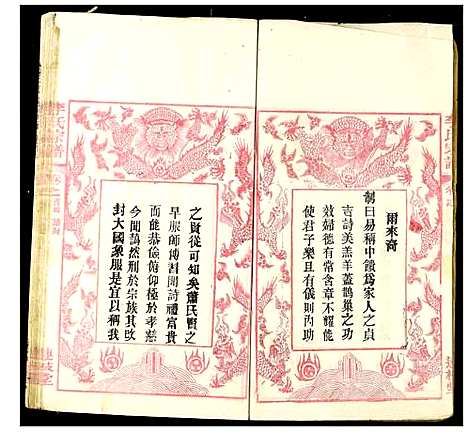 爾來奇
制曰易稱中饋為家人之貞
吉詩美羔羊蓋鵲巢之功
效婦德有常含章不耀能
使君子樂且有儀則內助
之賢從可知矣蕭氏賢之
早服師傅習聞詩禮富貴
而能恭儉俯仰極於孝慈
今聞蔼然刑於宗族其改
封大國象服是宜以稱我
李氏宗譜
李氏宗譜